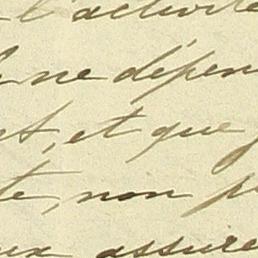 l'activité
ne dépen
et que
te, non p
assure